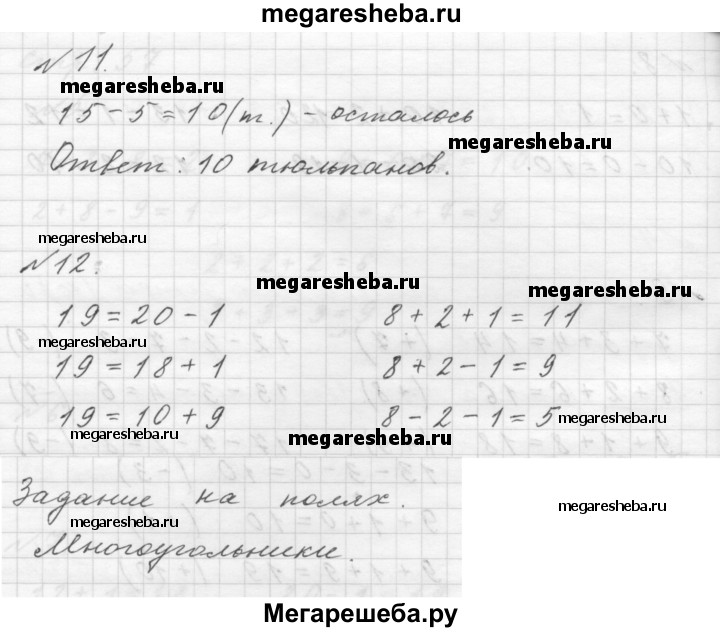 megaresheba.ru
№11.
megaresheba.ru
15-5=10(т.) - осталось
megaresheba.ru
Ответ: 10 тюльпанов.
megaresheba.ru
№12:
megaresheba.ru
megaresheba.ru
19=20-1 8+2+1=11
megaresheba.ru
19=18+1 8+2-1=9
19=10+9 8-2-1=5
megaresheba.ru
megaresheba.ru
megaresheba.ru
Задание на полях.
megaresheba.ru
megaresheba.ru
Многоугольники.
Мегарешеба.ру